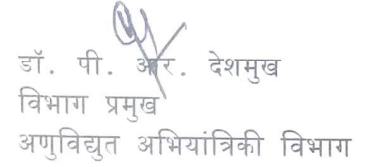 डॉ. पी. आर. देशमुख
विभाग प्रमुख
अणुविद्युत अभियांत्रिकी विभाग